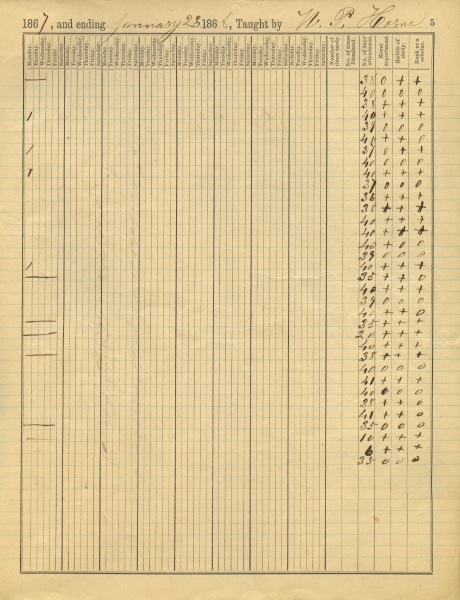 1867, and ending January 23 1868, Taught by W. P. Horne 5
Monday. Tuesday. Wednesday. Thursday. Friday. Saturday. Number of times tardy. No. of times Dismissed. No. of days Attence. Moral deportment. Habits of study. Rank as a scholar.
38 0 + +
40 0 0 0
38 + + +
40 + + +
39 0 0 0
40 + + 0
37 0 + +
40 0 0 0
40 + + +
37 0 0 0
36 + + +
38 + + +
40 + + +
40 + + +
40 + 0 0
39 0 0 0
40 + + +
35 + + 0
40 + + +
39 0 0 0
40 + + 0
35 + + +
20 + + +
40 + + +
38 + + +
40 0 0 0
41 + + +
40 0 0 0
38 + + 0
41 + + 0
35 0 0 0
10 + + +
6 + + +
35 0 0 0